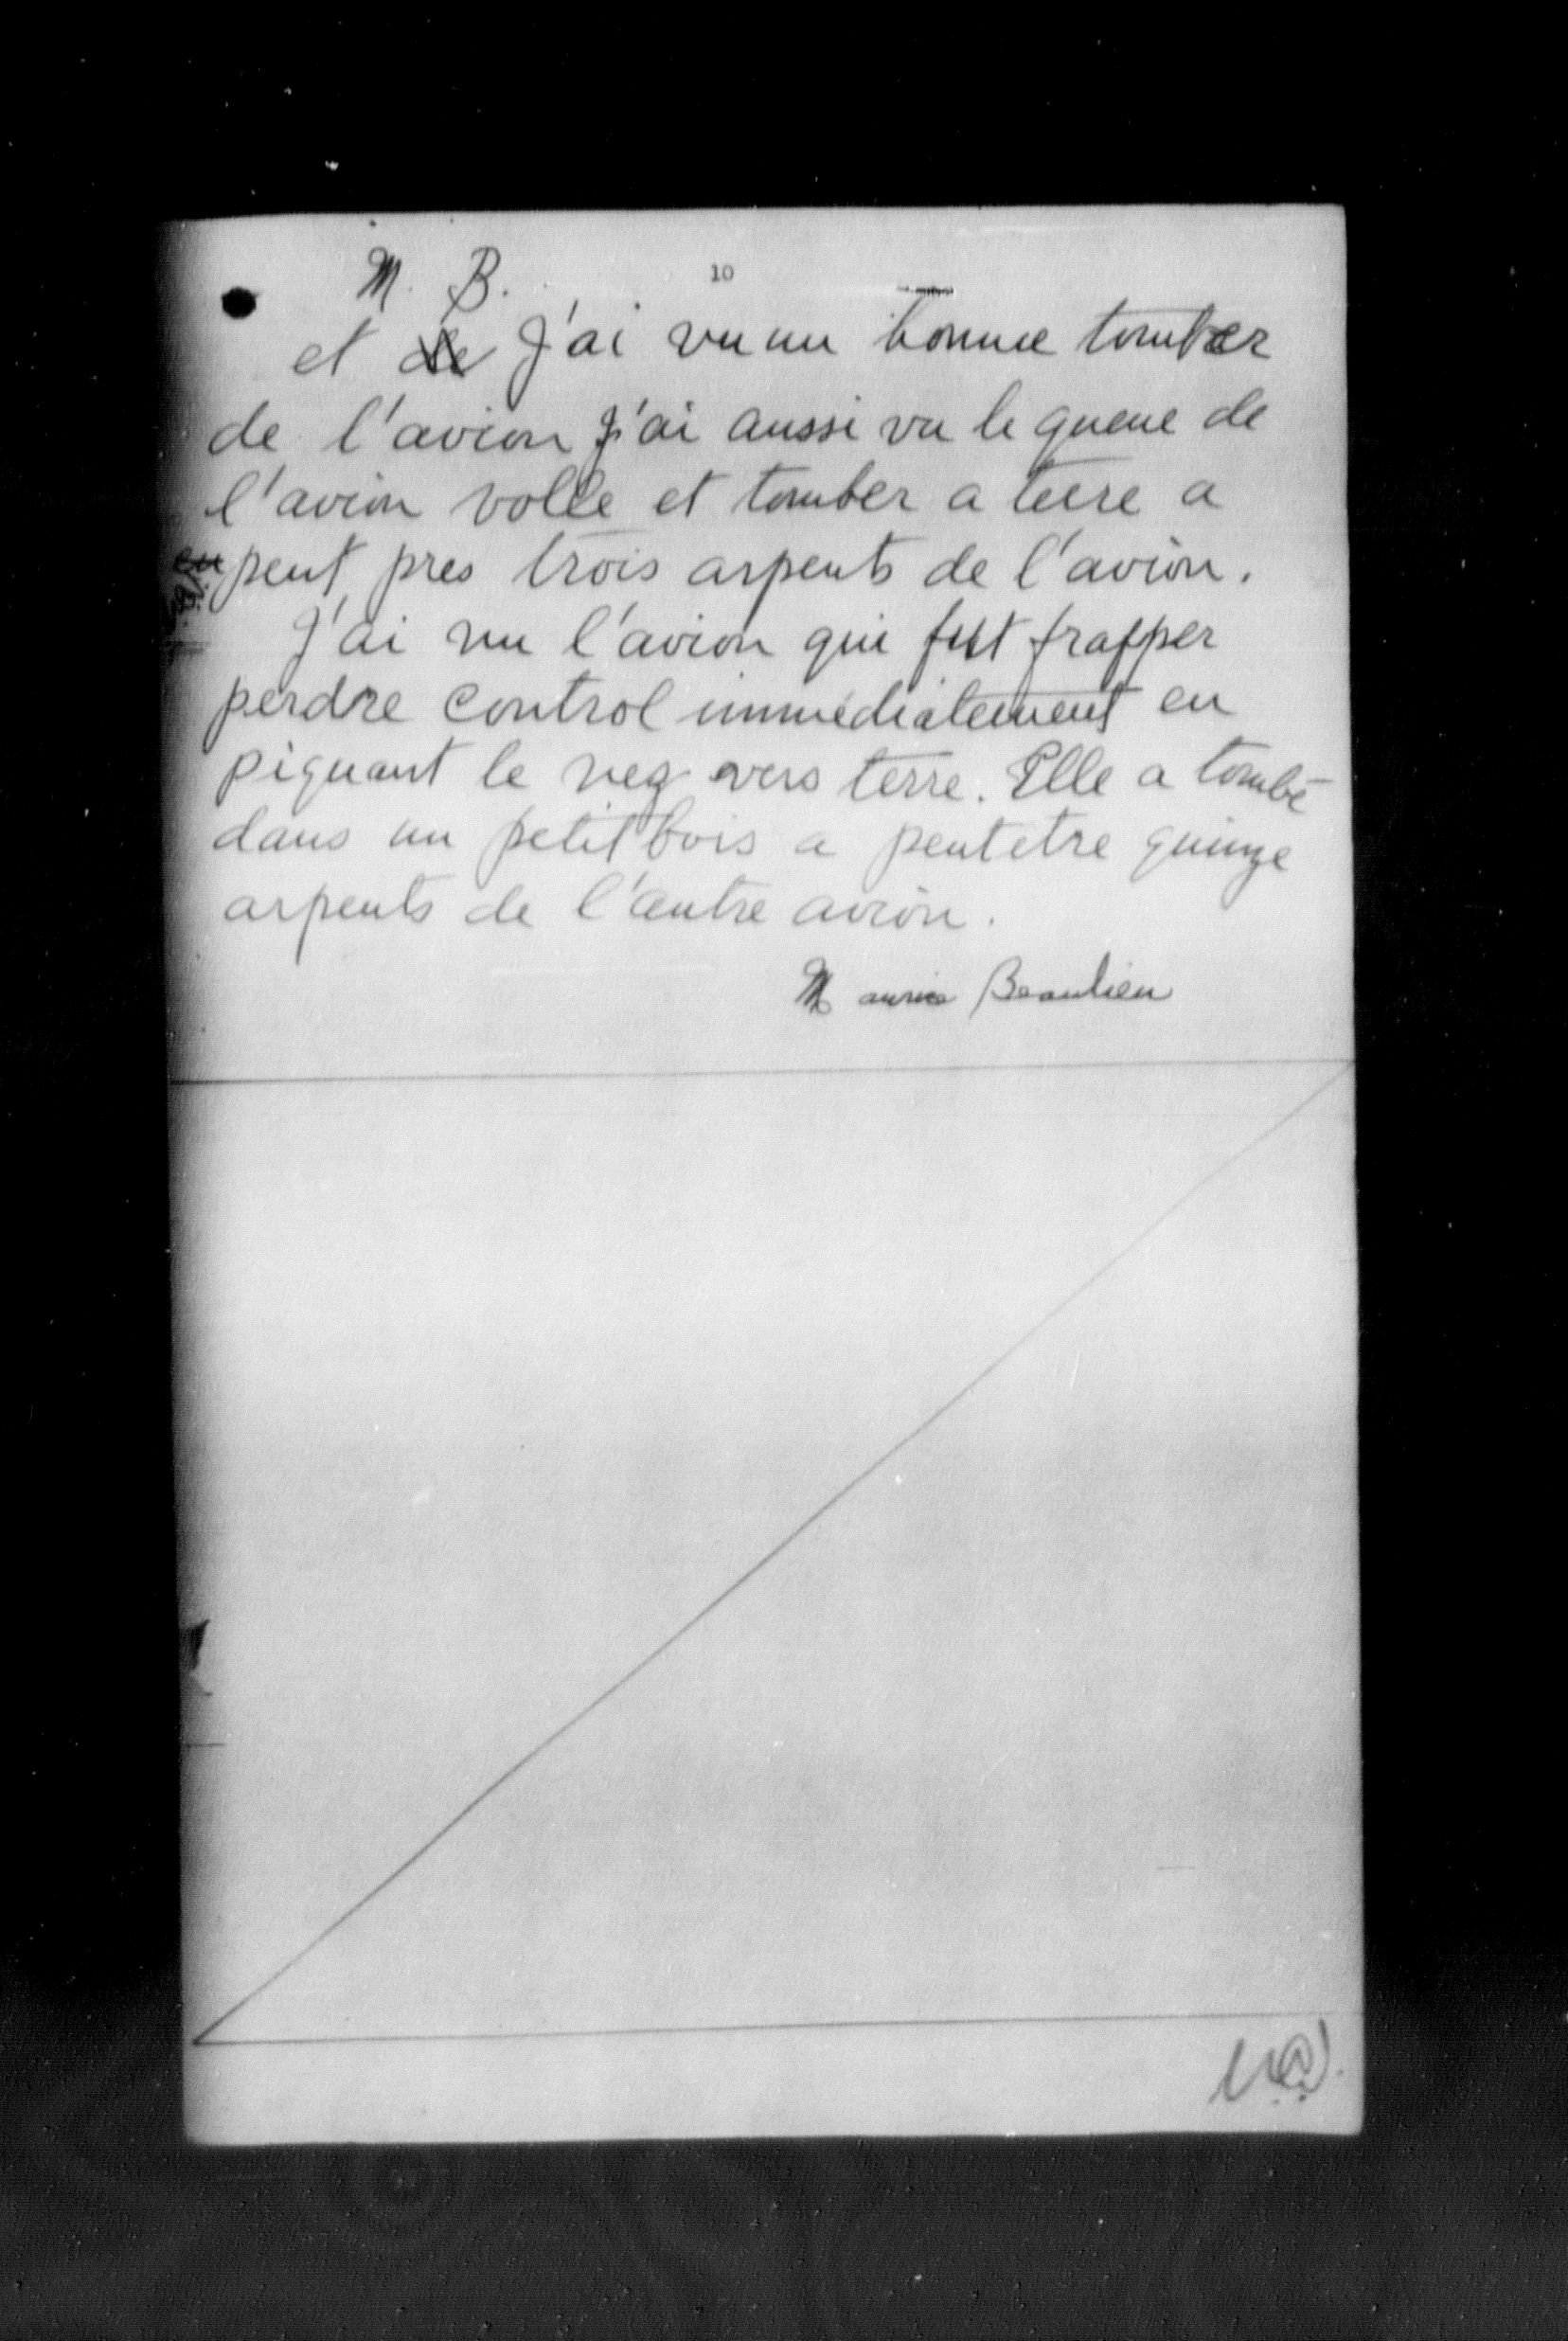 10
M. B.
et de J'ai vu un homme tomber
de l'avion J'ai aussi vu le queue de
l'avion volle et tomber a terre a
peut pres trois arpents de l'avion.
J'ai vu l'avion qui fut frapper
perdre control immédiatement en
piquant le nez vers terre. Elle a tombé
dans un petit bois a peutetre quinze
arpents de l'autre avion.
Maurice Beaulieu